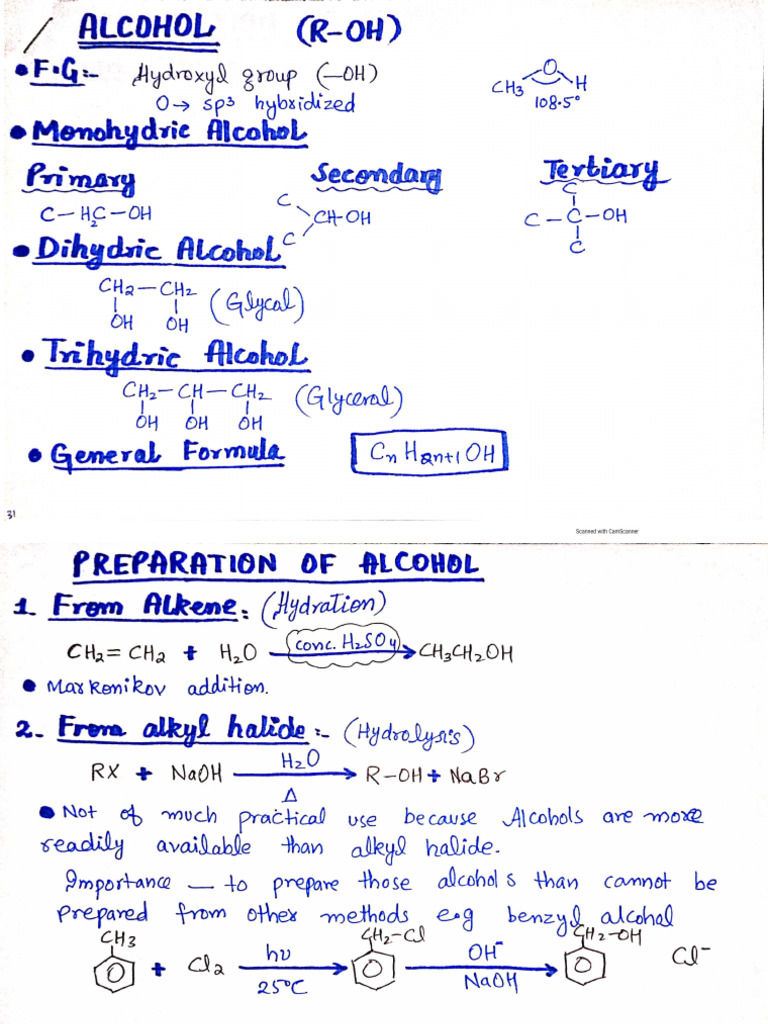 ALCOHOL (R-OH)
• F.G:- Hydroxyl group (-OH)
O → sp3 hybridized
CH3 O H
108.5°
• Monohydric Alcohol
Primary Secondary Tertiary
C - H2C - OH
C
C
CH-OH
C
C - C - OH
C
• Dihydric Alcohol
CH2 - CH2 (Glycol)
OH OH
• Trihydric Alcohol
CH2 - CH - CH2 (Glycerol)
OH OH OH
• General Formula CnH2n+1OH
31
Scanned with CamScanner
PREPARATION OF ALCOHOL
1. From Alkene: (Hydration)
CH2 = CH2 + H2O conc. H2SO4 → CH3CH2OH
• Markonikov addition.
2- From alkyl halide:- (Hydrolysis)
RX + NaOH H2O → Δ R-OH + NaBr
• Not of much practical use because Alcohols are more
readily available than alkyl halide.
Importance — to prepare those alcohols than cannot be
prepared from other methods e.g benzyl alcohol
CH3 CH2-Cl CH2-OH
+ Cl2 hν → 25°C OH- → NaOH Cl-